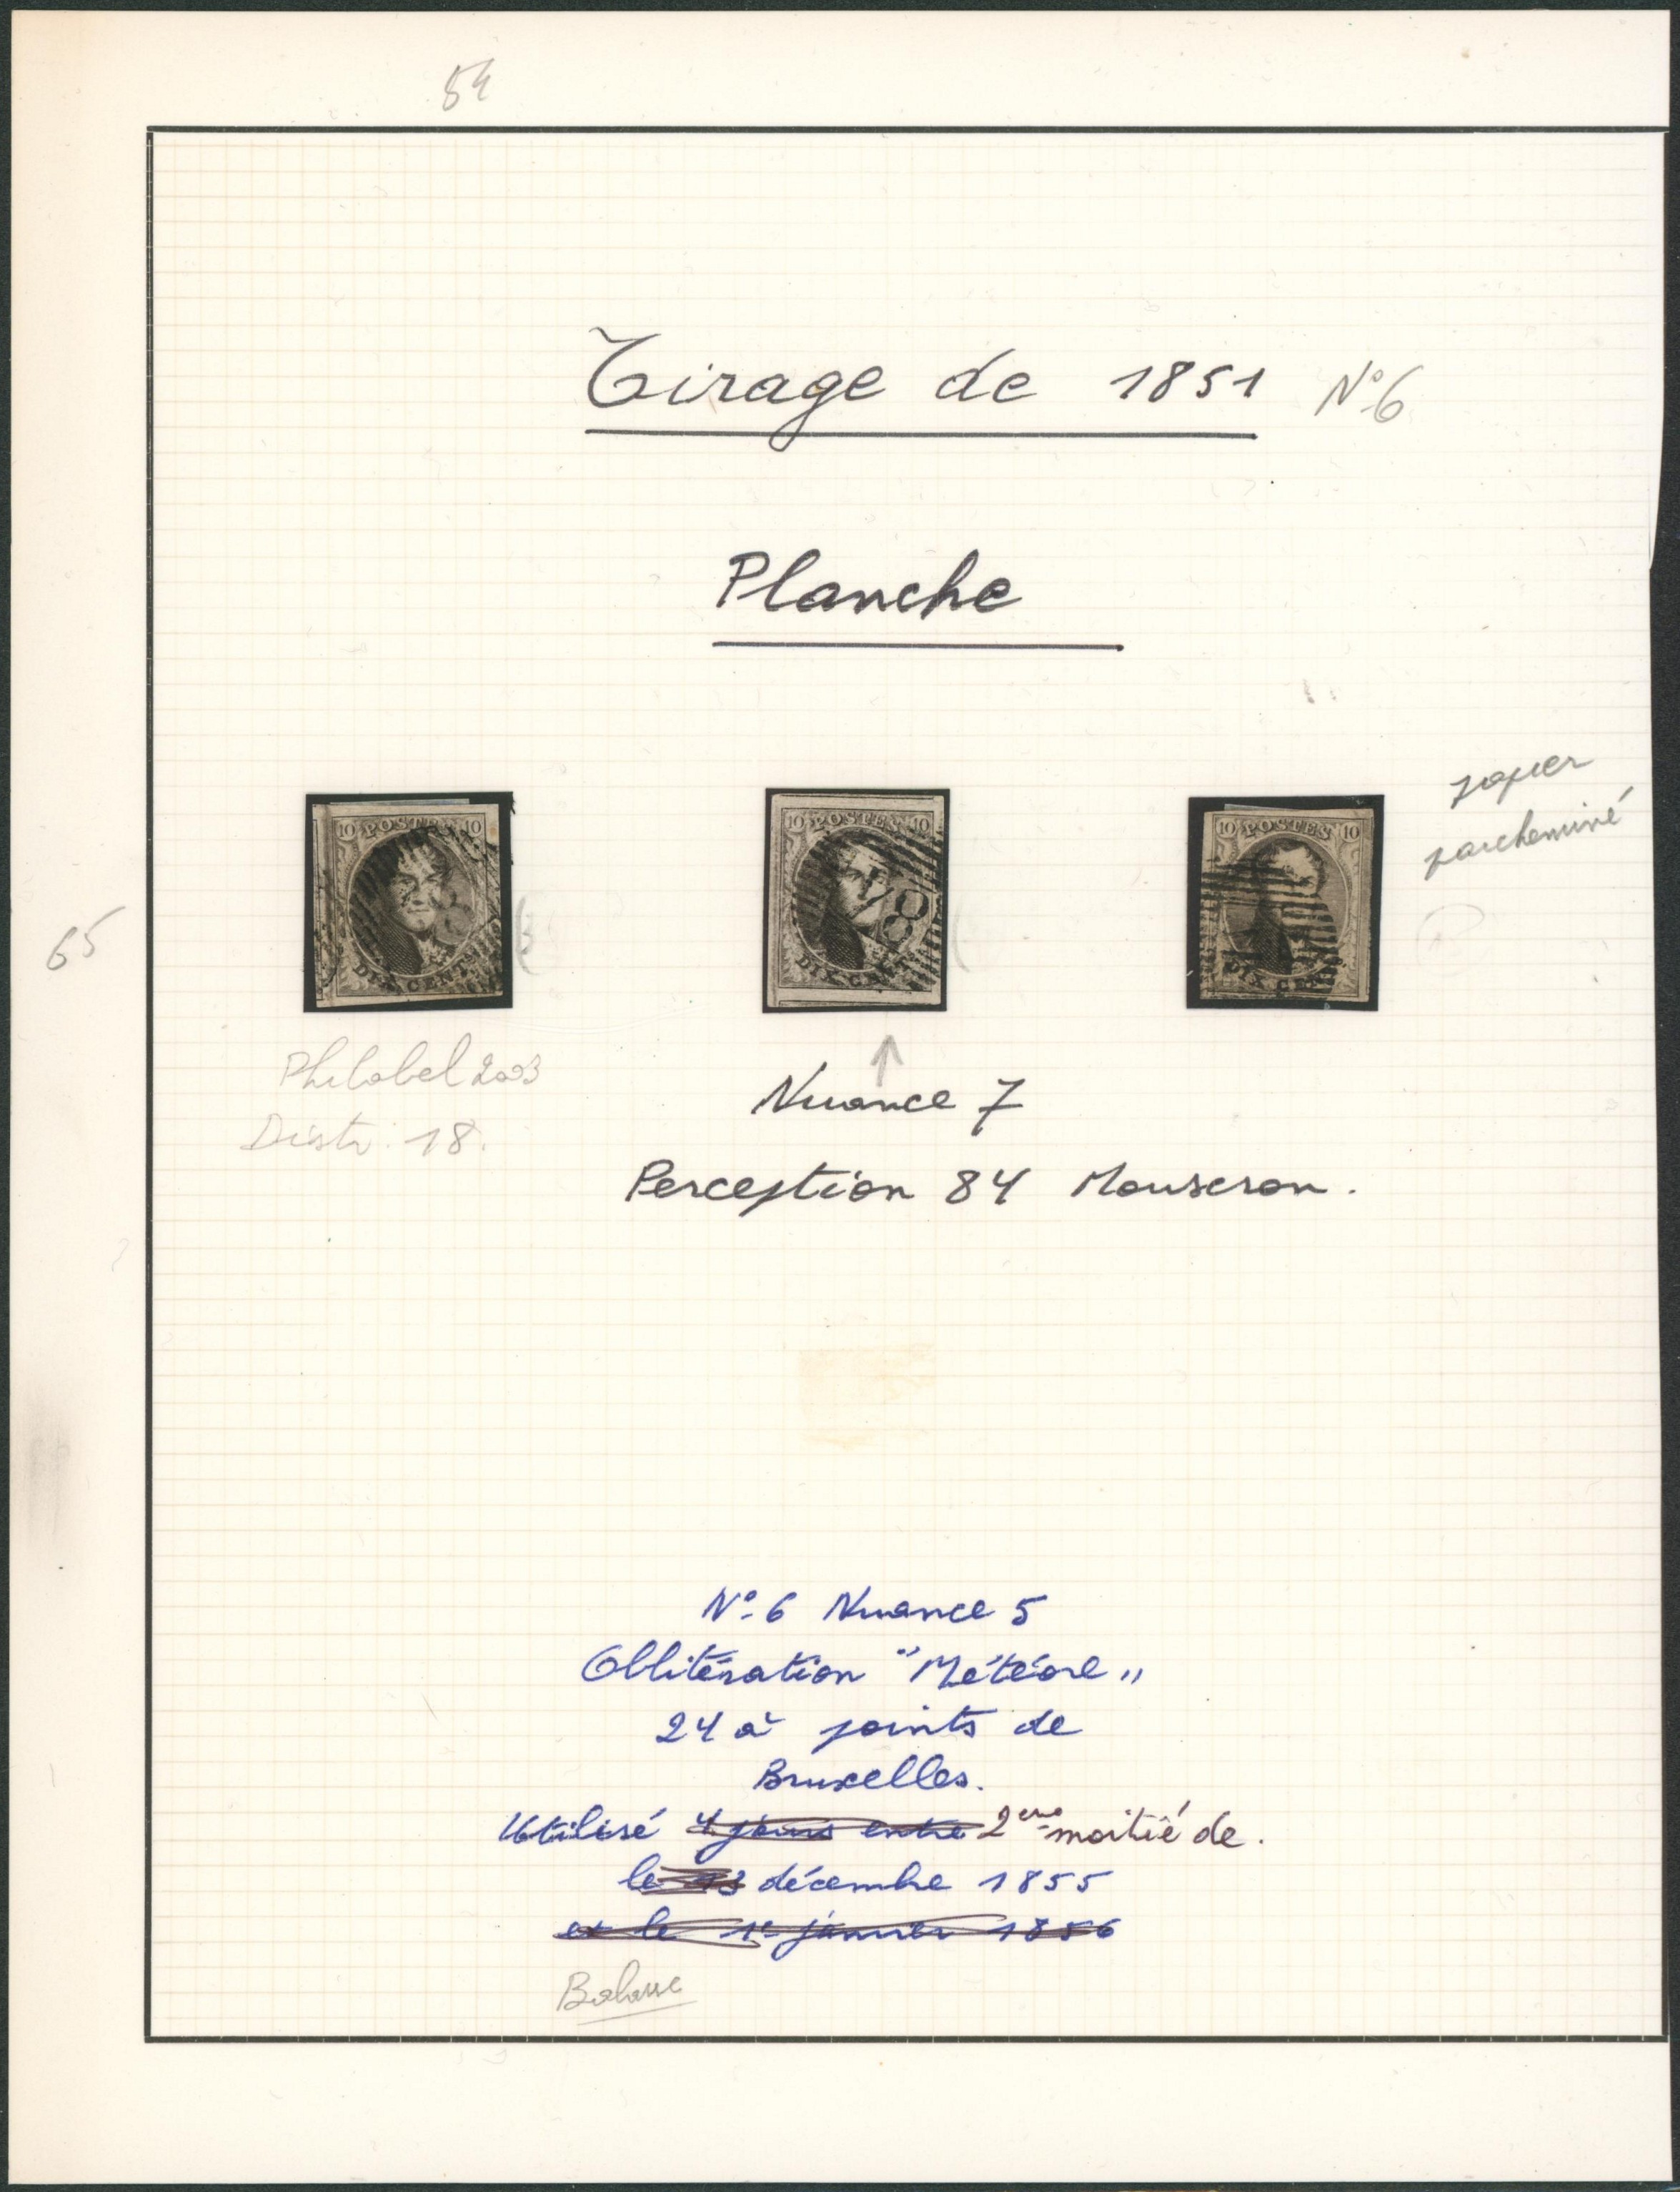 54
Tirage de 1851 N° 6
Planche
papier
parcheminé
10 POSTES 10
DIX CENTS
10 POSTES 10
DIX CENTS
10 POSTES 10
DIX CENTS
65
Philabel 2003
Distr: 18.
Nuance 7
Perception 84 Mouscron.
N° 6 Nuance 5
Oblitération "Météore„
24 à points de
Bruxelles.
Utilisé 4 jours entre 2eme moitié de.
le 13 décembre 1855
et le 1° janvier 1856
Balasse